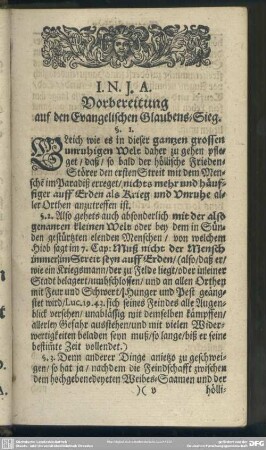 I. N. J. A.
Vorbereitung
auf den Evangelischen Glaubens-Sieg.
§. 1.
Gleich wie es in dieser gantzen grossen
unruhigen Welt daher zu gehen pfle-
get / daß / so bald der höllische Friedens-
Störer den ersten Streit mit dem
Mensche im Paradiß erreget / nichts mehr und häuf-
figer auff Erden als Krieg und Unruhe al-
ler Orthen anzutreffen ist.
§. 2. Also gehets auch absonderlich mit der also
genanten kleinen Welt oder bey dem in Sünden
gestürtzten elenden Menschen / von welchem
Hiob sagt im 7. Cap: Muß nicht der Mensch
immer im Streit seyn auff Erden / (also / daß er /
wie ein Kriegsmann / der zu Felde liegt / oder in einer
Stadt belagert / umbschlossen / und an allen Orthen
mit Feur und Schwert / Hunger und Pest geäng-
stet wird / Luc. 19. 43. sich seines Feindes alle Augen-
blick versehen / unablässig mit demselben kämpffen /
allerley Gefahr ausstehen / und mit vielen Wider-
wertigkeiten beladen seyn muß / so lange / biß er seine
bestimte Zeit vollendet.)
§. 3. Denn anderer Dinge anietzo zu geschwei-
gen / so hat ja / nachdem die Feindschafft zwischen
dem hochgebenedeyten Weibes-Saamen und der
)( v
hölli-